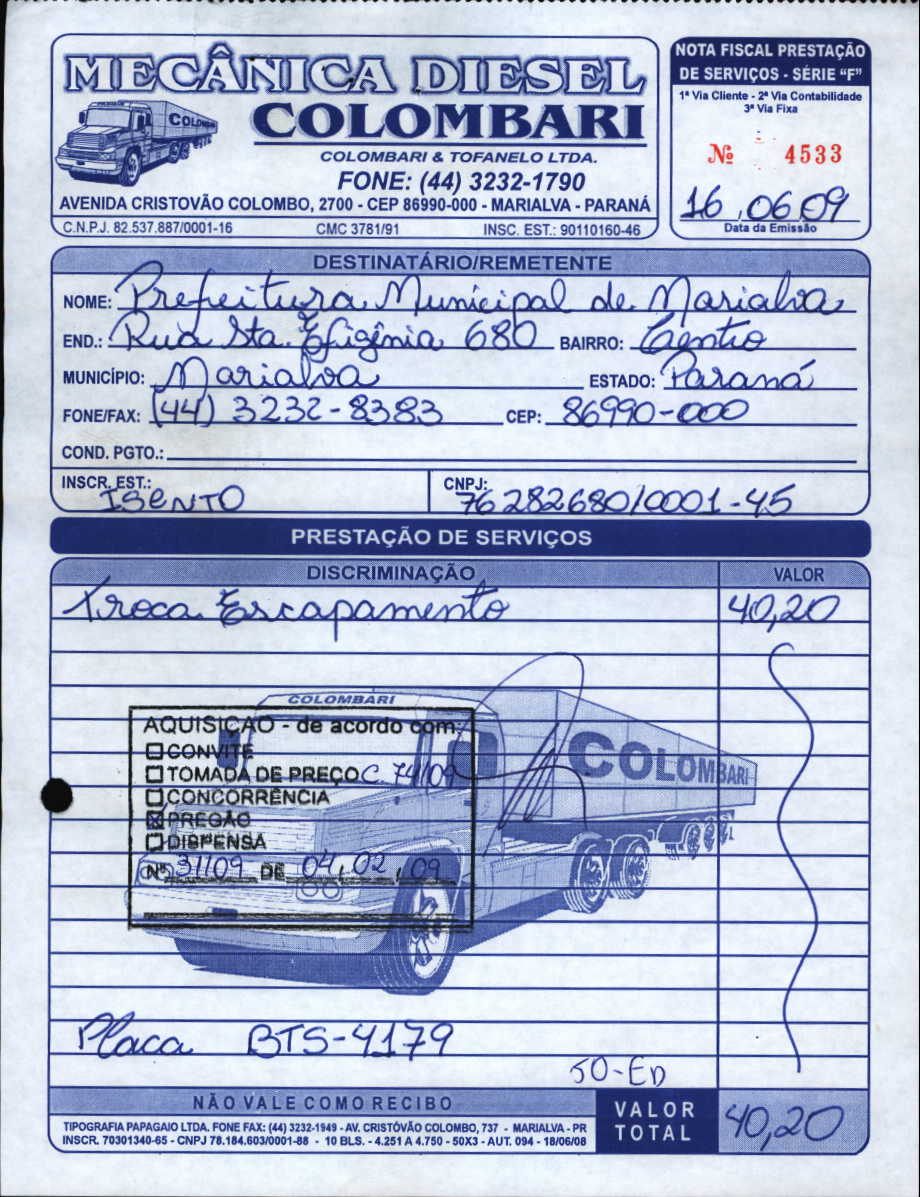 MECÂNICA DIESEL
COLOMBARI
COLOMBARI & TOFANELO LTDA.
FONE: (44) 3232-1790
AVENIDA CRISTOVÃO COLOMBO, 2700 - CEP 86990-000 - MARIALVA - PARANÁ
C.N.P.J. 82.537.887/0001-16 CMC 3781/91 INSC. EST.: 90110160-46
NOTA FISCAL PRESTAÇÃO
DE SERVIÇOS - SÉRIE “F”
1ª Via Cliente - 2ª Via Contabilidade
3ª Via Fixa
Nº 4533
16 06 09
Data da Emissão
DESTINATÁRIO/REMETENTE
NOME: Prefeitura Municipal de Marialva
END.: Rua Sta. Efigênia 680 BAIRRO: Centro
MUNICÍPIO: Marialva ESTADO: Paraná
FONE/FAX: (44) 3232-8383 CEP: 86990-000
COND. PGTO.:
INSCR. EST.: ISENTO CNPJ: 76282680/0001-45
PRESTAÇÃO DE SERVIÇOS
DISCRIMINAÇÃO VALOR
Troca Escapamento 40,20
COLOMBARI
COLOMBARI
AQUISIÇÃO - de acordo com:
CONVITE
TOMADA DE PREÇO C. 74/09
CONCORRÊNCIA
PREGÃO
DISPENSA
Nº 31/09 DE 04, 02, 09
Placa BTS-4179
50-ED
NÃO VALE COMO RECIBO
TIPOGRAFIA PAPAGAIO LTDA. FONE FAX: (44) 3232-1949 - AV. CRISTÓVÃO COLOMBO, 737 - MARIALVA - PR
INSCR. 70301340-65 - CNPJ 78.184.603/0001-88 - 10 BLS. - 4.251 A 4.750 - 50X3 - AUT. 094 - 18/06/08
VALOR TOTAL 40,20